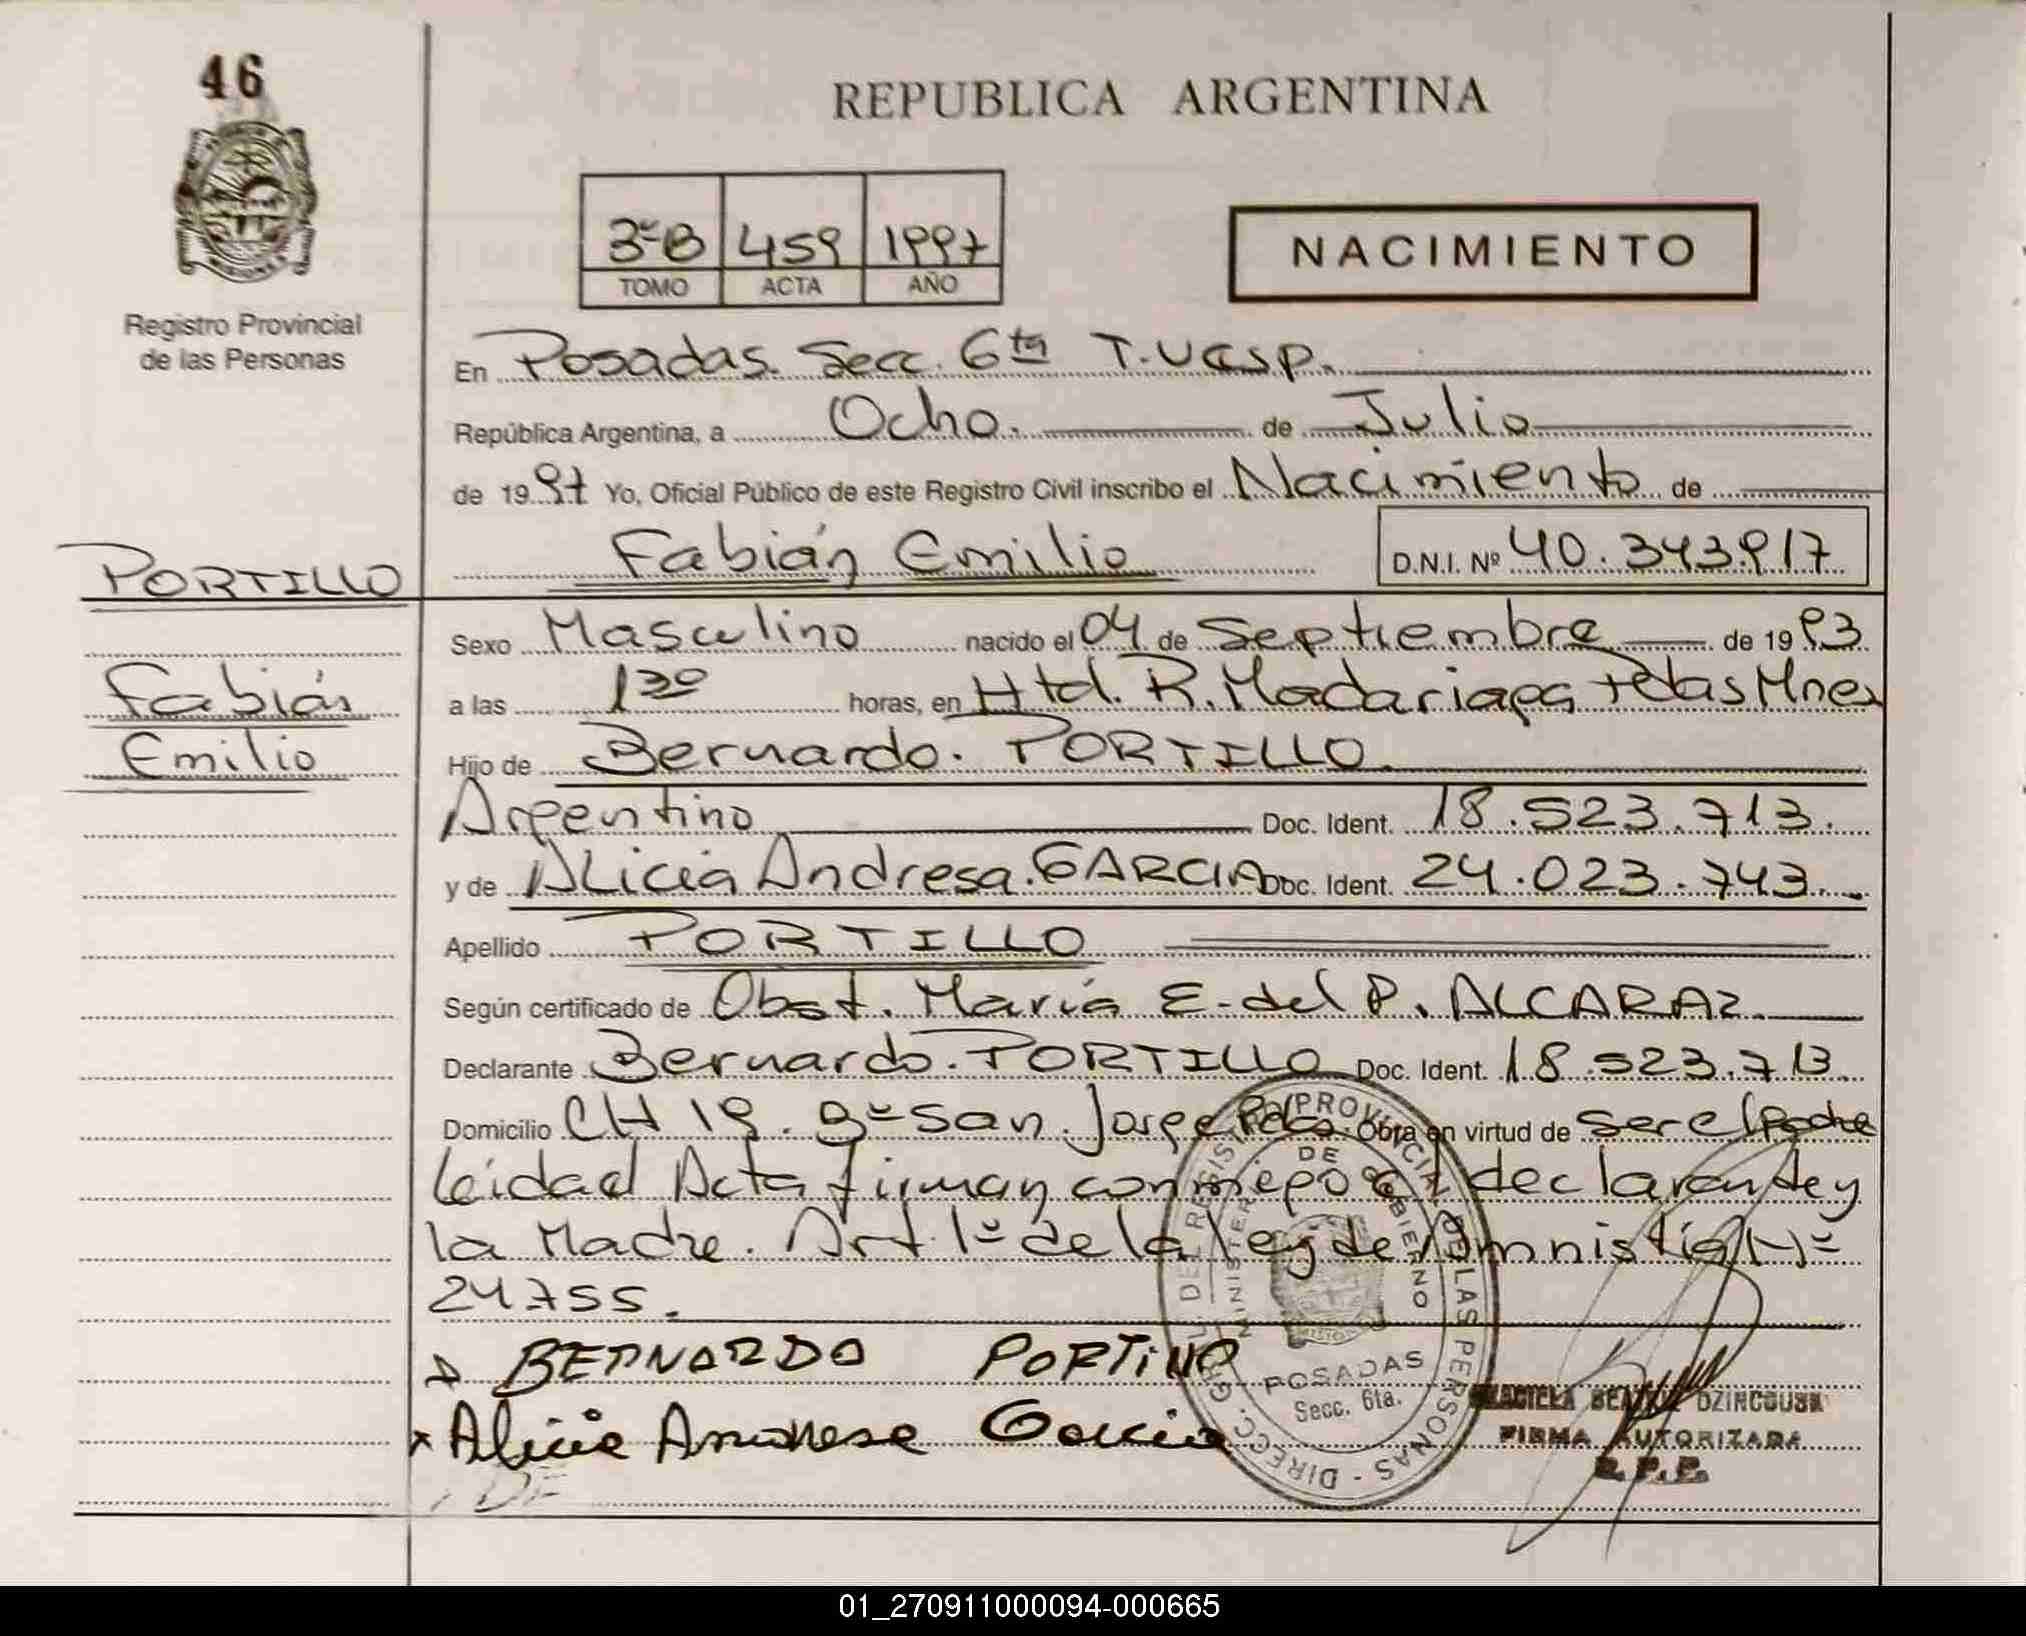 46
REPUBLICA ARGENTINA
3º-B 459 1997
TOMO ACTA AÑO
NACIMIENTO
Registro Provincial
de las Personas
En Posadas. Secc. 6ta
República Argentina, a Ocho. de Julio
de 1997 Yo, Oficial Público de este Registro Civil inscribo el Nacimiento de
Fabián Emilio D.N.I. Nº 40.343.917
PORTILLO
Fabián
Emilio
Sexo Masculino nacido el 04 de Septiembre de 1993
a las 1³⁰ horas, en Htal. R. Madariaga Pdas Mnes
Hijo de Bernardo. PORTILLO.
Argentino Doc. Ident. 18.523.713.
y de Alicia Andresa. GARCIA Doc. Ident. 24.023.743.
Apellido PORTILLO
Según certificado de Obst. María E. del P. ALCARAZ
Declarante Bernardo. PORTILLO Doc. Ident. 18.523.713
Domicilio CH 19. Bº San Jorge Pdas. Obra en virtud de ser el padre
Leida el Acta firman conmigo el declarante y
la Madre. Art 1º de la ley de Amnistia Nº
24755.
BERNARDO PORTILLO
Alicia Andresa Garcia
DIRECC. GRAL. DEL REGISTRO PROVINCIAL DE LAS PERSONAS
MINISTERIO DE GOBIERNO
POSADAS
Secc. 6ta.
GRACIELA BEATRIZ
FIRMA AUTORIZADA
R.P.P.
01_270911000094-000665